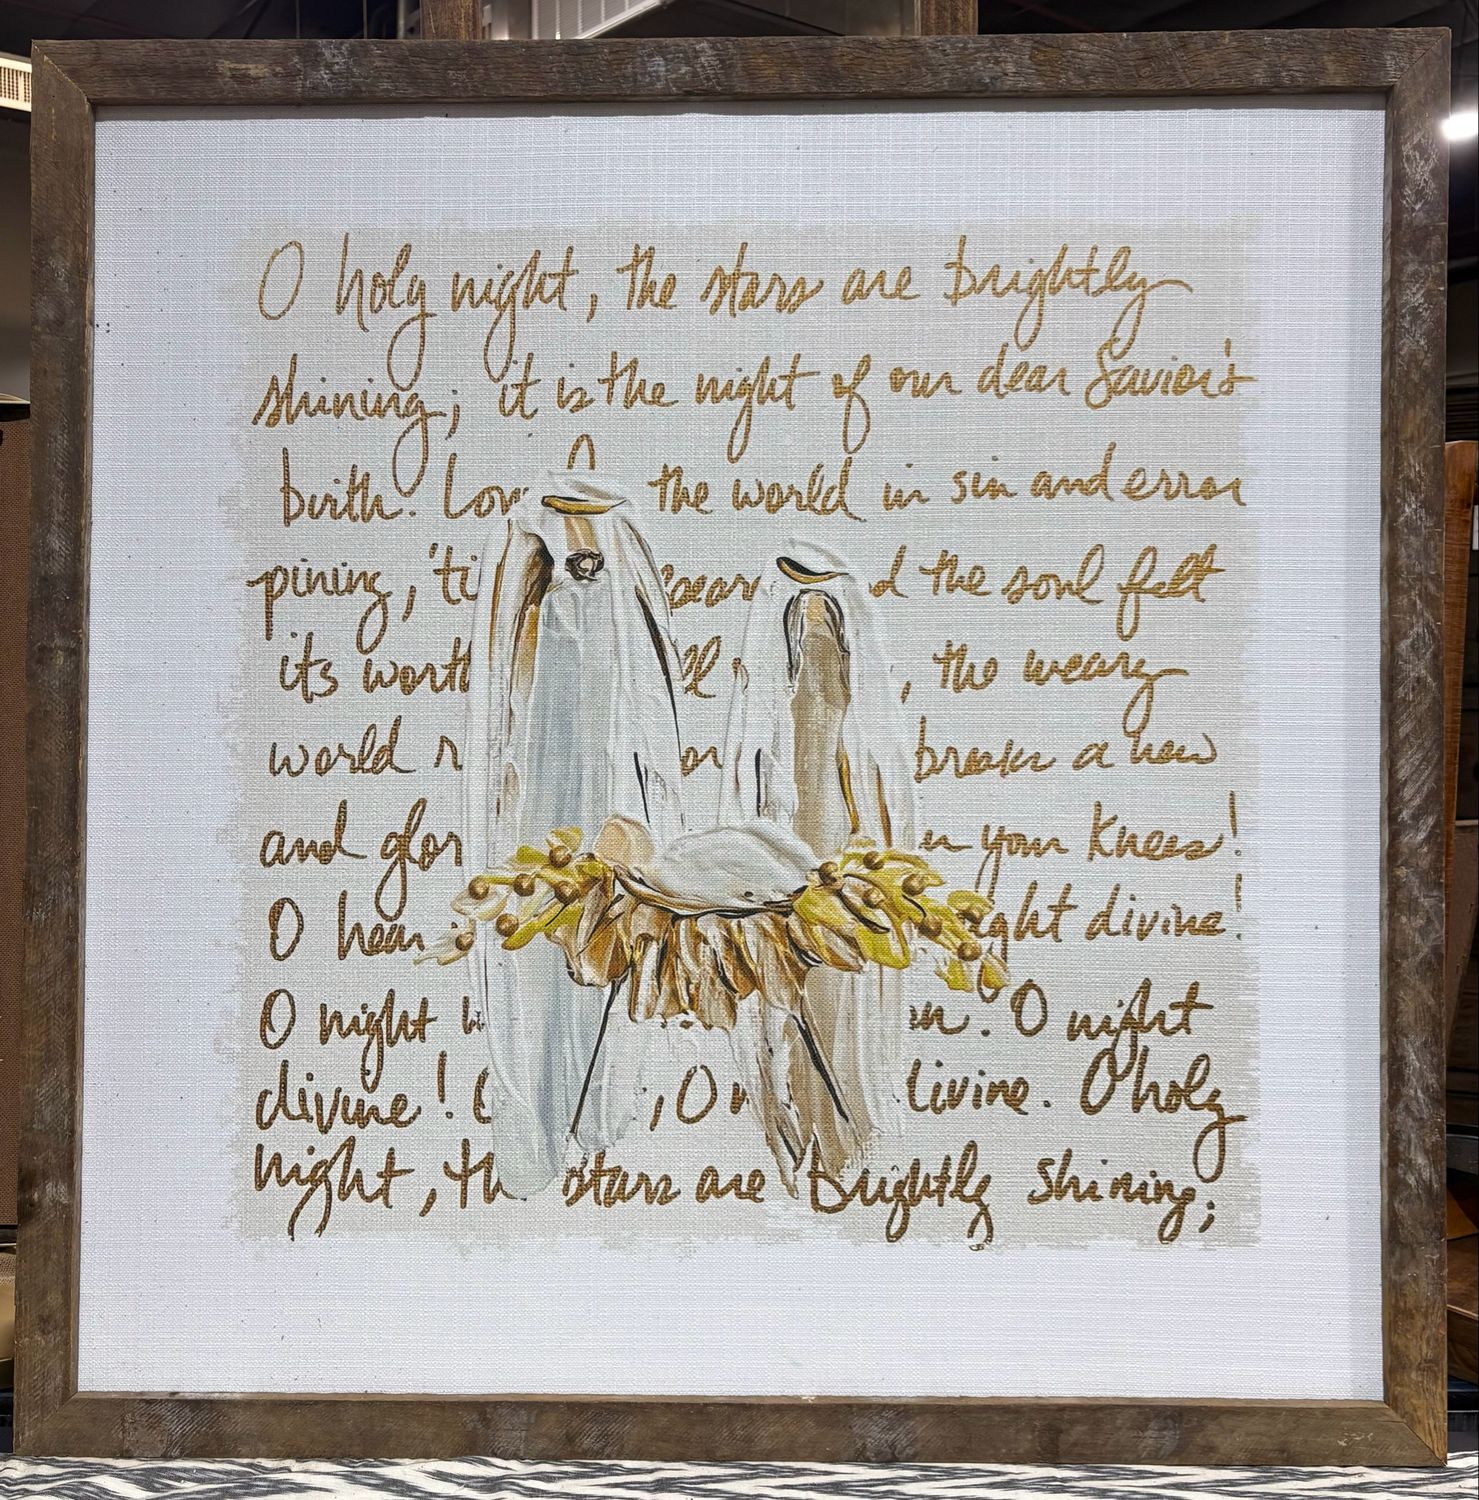 O holy night, the stars are brightly
shining; it is the night of our dear Savior's
birth. the world in sin and error
pining, the soul felt
its the weary
world breaks a new
and your knees!
O divine!
O night O night
divine! O divine. O holy
night, stars are brightly shining;